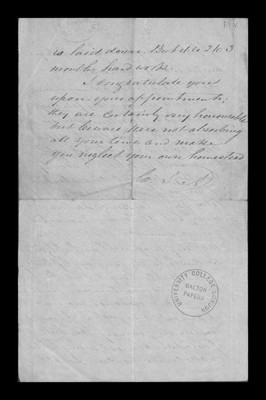 is laid down. But it is 2 or 3
months hard work.
I congratulate you
upon your appointments;
they are certainly very honourable
but beware they are not absorbing
all your time and make
you neglect your own homestead
UNIVERSITY COLLEGE LONDON
GALTON
PAPERS